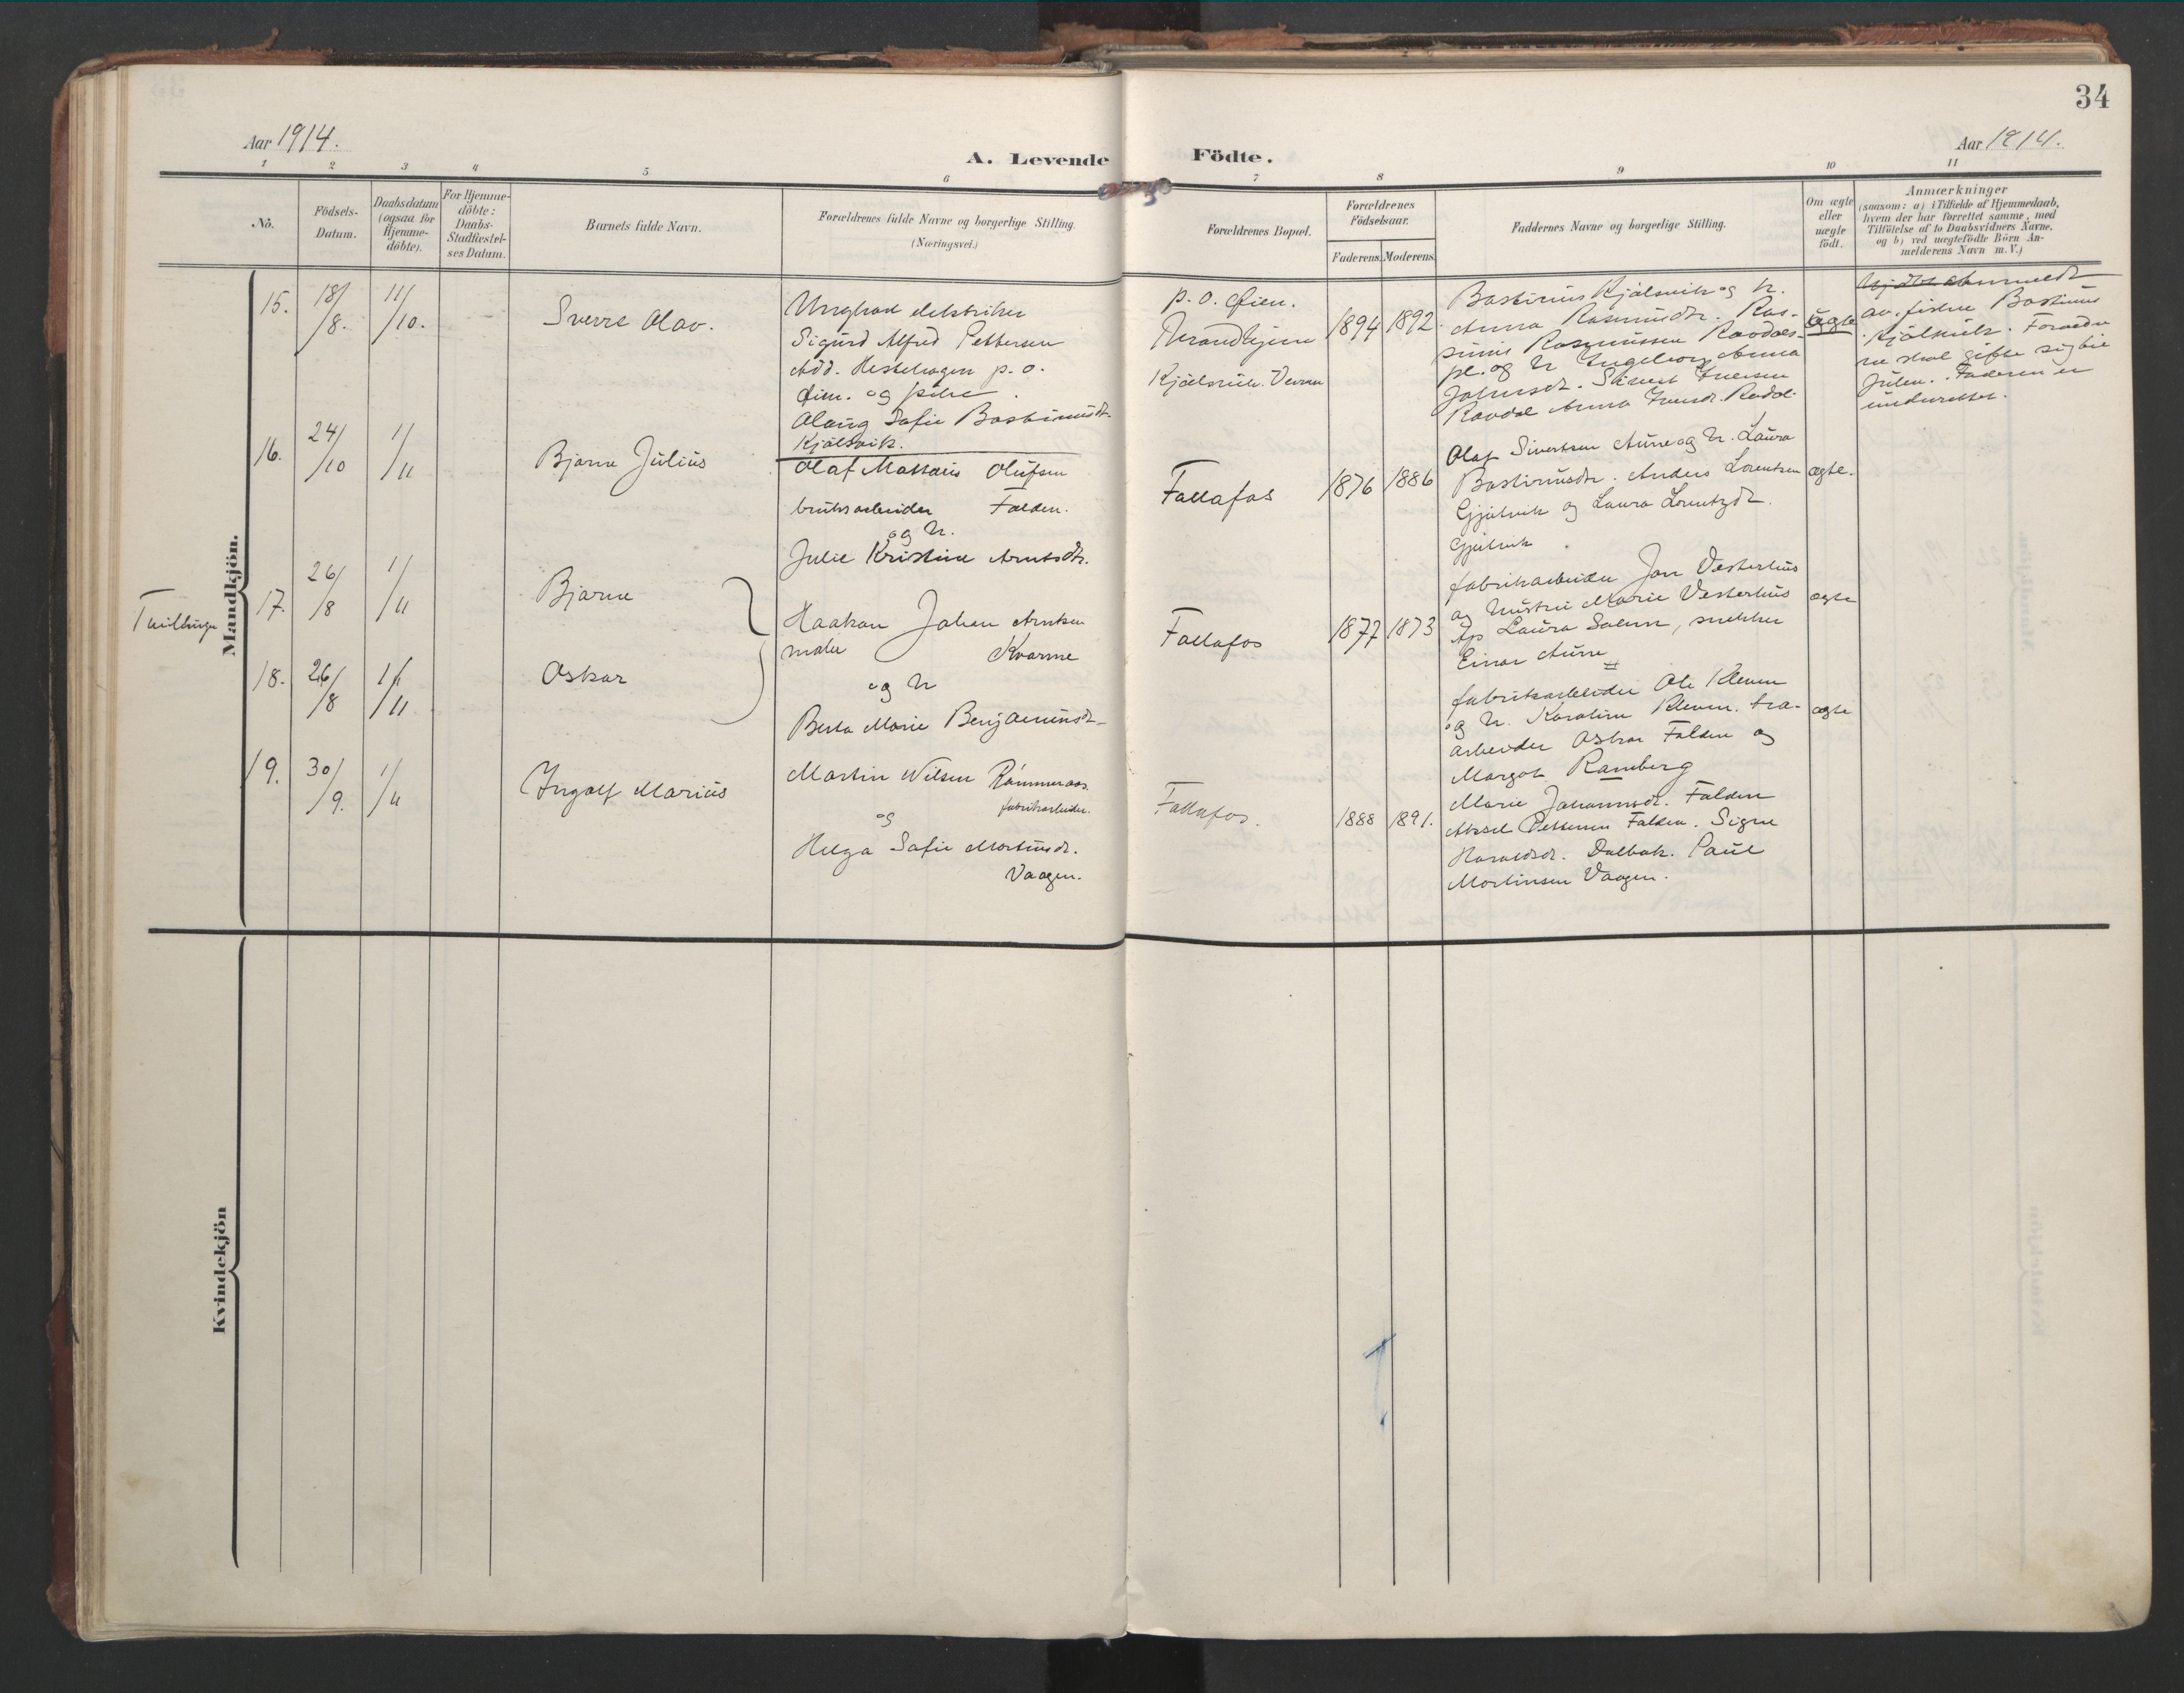 34
Aar 1914.
A. Levende Födte.
Aar 1914.
1 2 3 4 5 6 7 8 9 10 11
No.
Födsels-
Datum.
Daabsdatum
(ogsaa for
Hjemme-
döbte).
For Hjemme-
döbte:
Daabs-
Stadfæstel-
ses Datum.
Barnets fulde Navn.
Forældrenes fulde Navne og borgerlige Stilling.
(Næringsvei.)
Forældrenes Bopæl.
Forældrenes
Födselsaar.
Faderens. Moderens.
Faddernes Navne og borgerlige Stilling.
Om ægte
eller
uægte
födt.
Anmærkninger
(saasom: a) i Tilfælde af Hjemmedaab,
hvem der har forrettet samme, med
Tilföielse af to Daabsvidners Navne.
og b) ved uægtefödte Börn An-
melderens Navn m.V.)
Mandkjön.
15.
18/8.
11/10.
Sverre Olav.
Ungkar elektriker
Sigurd Alfred Pettersen
Add. Hestehagen p. o.
Øien. og pike
Olaug Sofie Bastiansdt.
Kjølsvik.
p. o. Øien.
Trondhjem
Kjølsvik. Vevan
1894
1892.
Bastinius Kjølsvik og h.
Anna Rasmusdt. Ras-
mus Rasmussen Ravdal-
pl. og h Ingeborg Anna
Johnsdt. Sivert Iversen
Ravdal Anna Iversdt. Ravdal.
uægte
anmeldt
av fisker Bastinius
Kjølsvik. Foræld-
re skal gifte sig til
Julen. Faderen er
underrettet.
16.
24/10
1/11
Bjarne Julius
Olaf Mattæus Olufsen
bruksarbeider Falden.
og h.
Julie Kristine Arntsdt.
Fallafos
1876
1886
Olaf Sivertsen Aune og h. Laura
Bastiansdt. Anders Lorentsen
Gjølvik og Laura Lorentzdt.
Gjølvik.
ægte.
Tvillinger
17.
26/8
1/11
Bjarne
Haakon Johan Arntsen
maler Kvarme
og h
Berta Marie Benjaminsdt.
Fallafos
1877
1873
fabrikarbeider Jon Vesterhus
og hustru Marie Vesterhus
Laura Salen, snekker
Einar Aune
ægte
18.
26/8
1/11
Oskar
fabrikarbeider Ole Kleven
og h. Karoline Kleven. tra-
arbeider Oskar Falden og
Margot Ramberg
ægte
19.
30/9.
1/11
Ingolf Marius
Martin Nilsen Rømmeraas.
fabrikarbeider.
og
Helga Sofie Martinsdt.
Vaagen.
Fallafos.
1888
1891.
Marie Johannsdt. Falden
Aksel Pettersen Falden. Signe
Haraldsdt. Dalbak. Paul
Martinsen Vaagen.
Kvindekjön